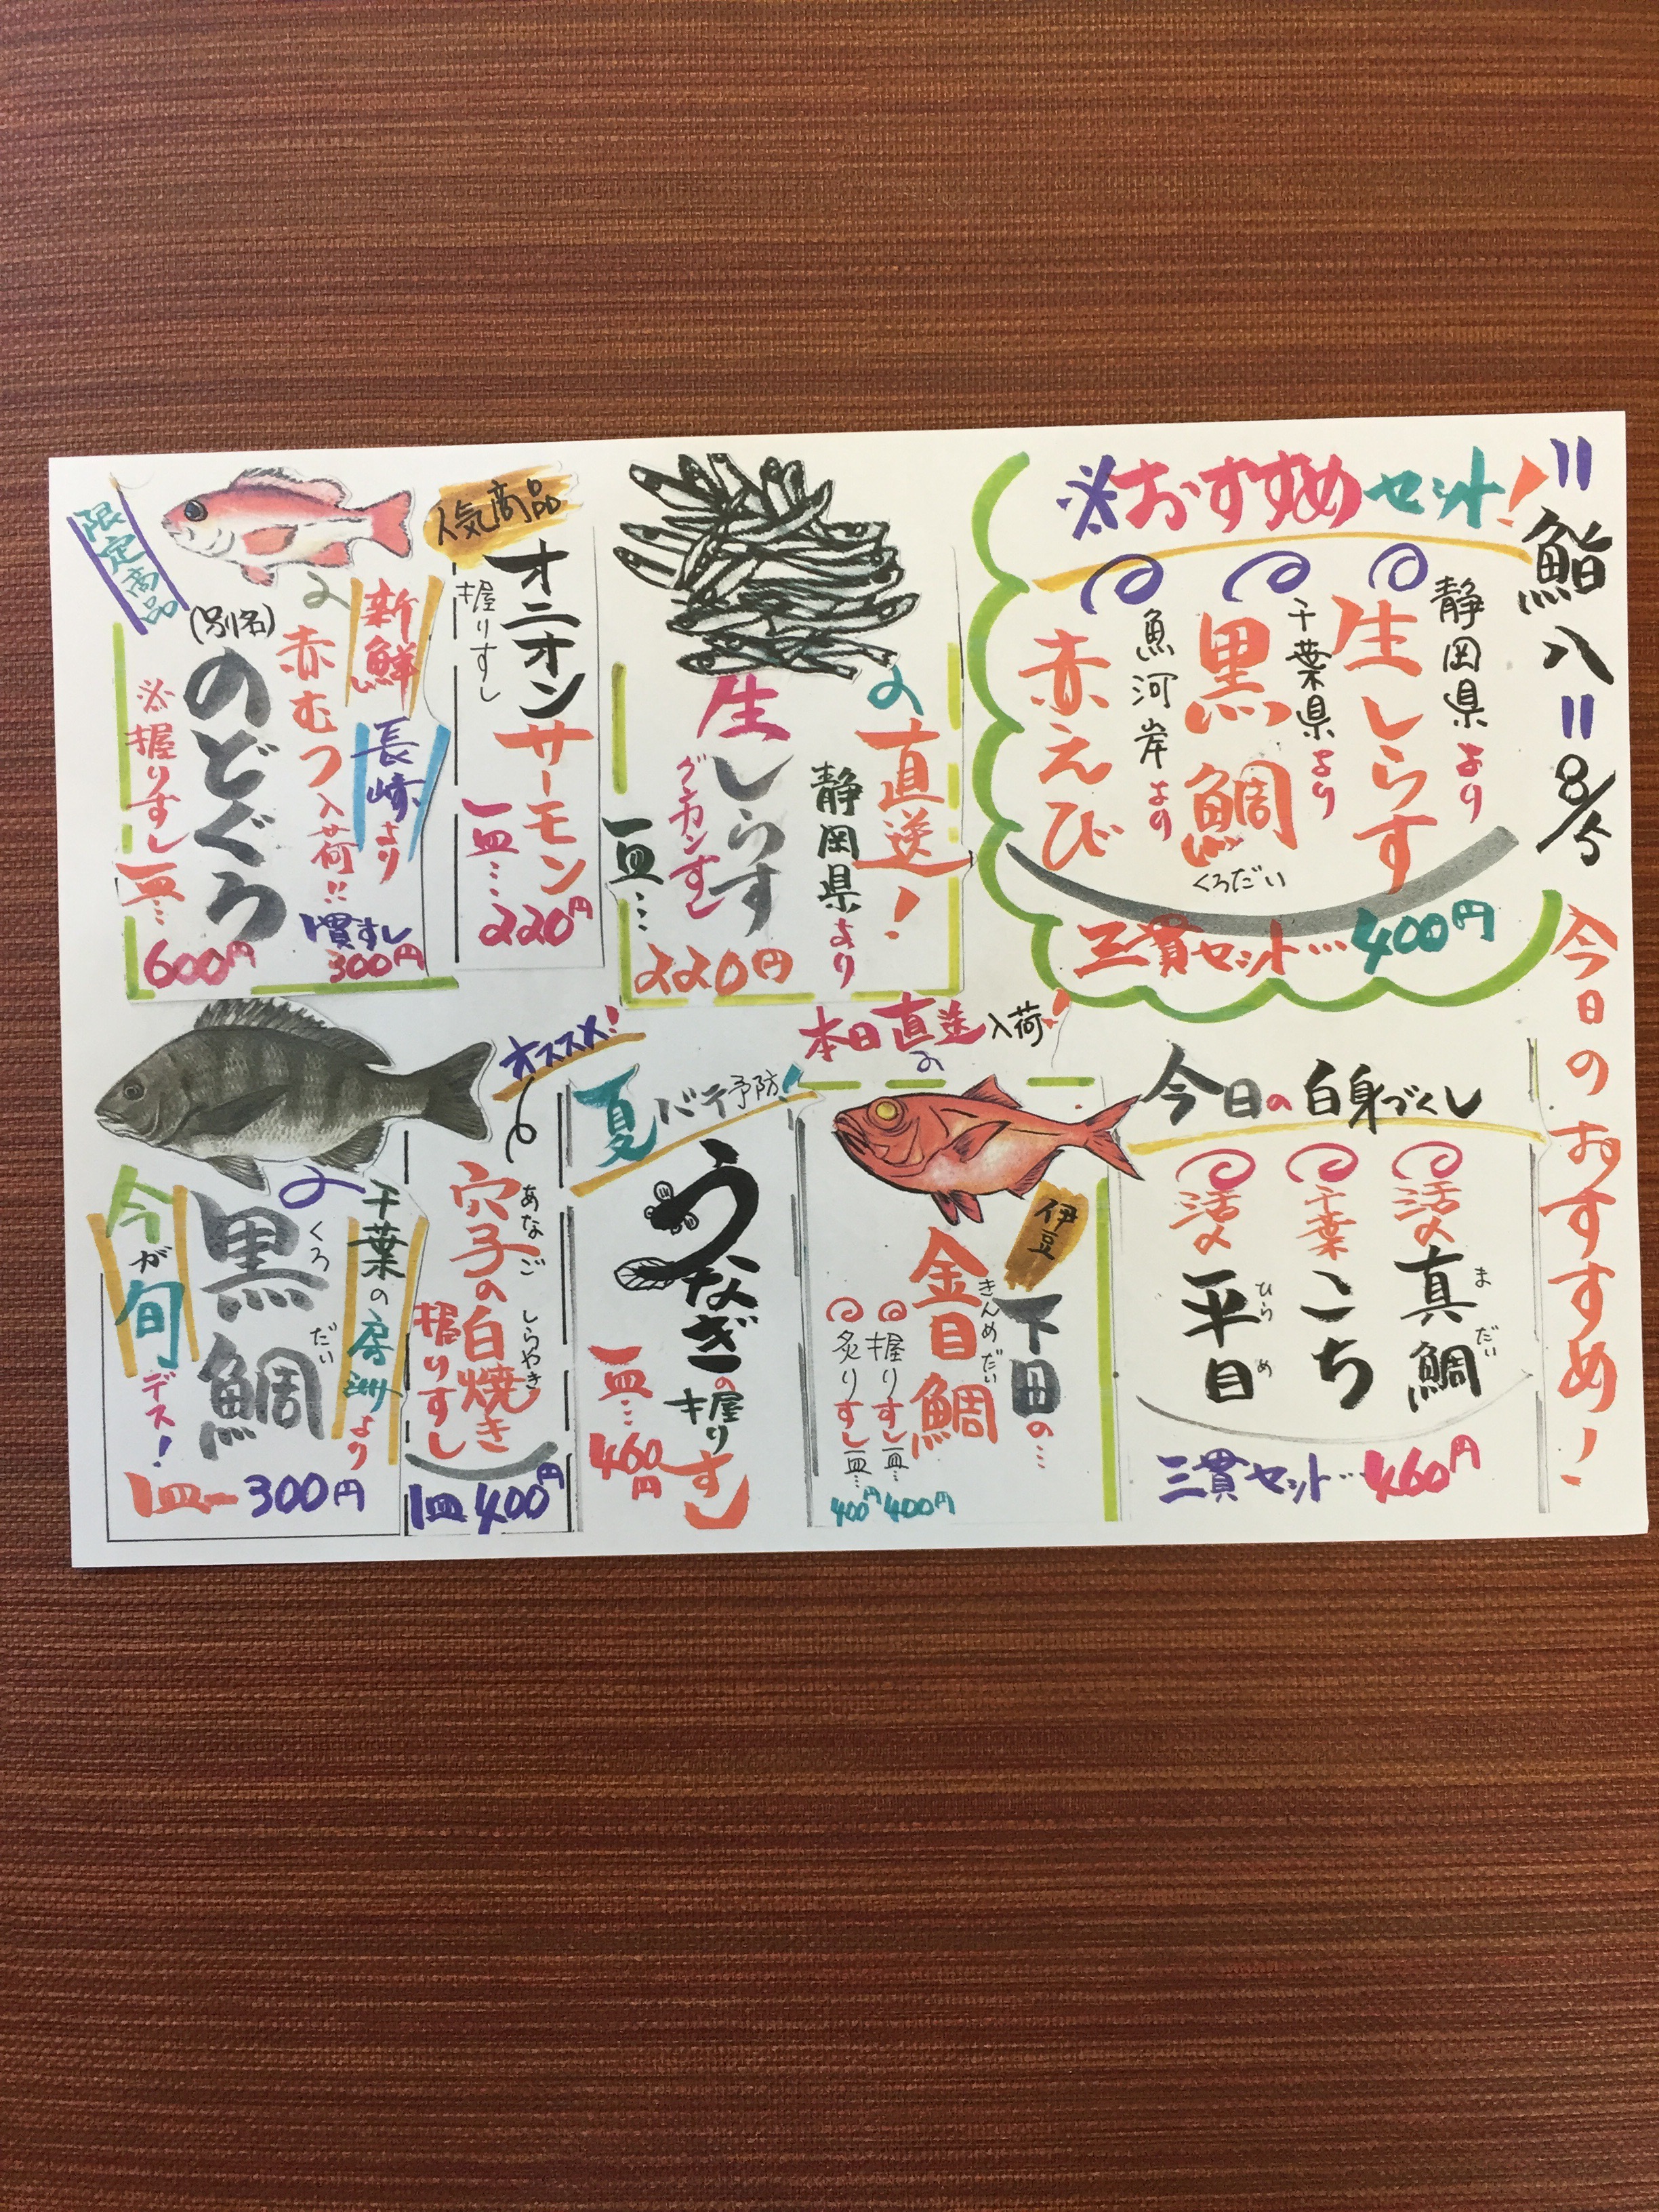 〃鮨八〃8/5
今日のおすすめ!
※おすすめセット!
静岡県より
生しらす
千葉県より
黒鯛
くろだい
魚河岸より
赤えび
三貫セット…400円
直送!
静岡県より
生しらす
グンカンすし
一皿…
220円
人気商品
オニオン
サーモン
握りすし
一皿…
220円
限定商品
新鮮
長崎より
赤むつ入荷!!
(別名)
のどぐろ
1貫すし
300円
※握りすし一皿…
600円
今日の白身づくし
活〆
真鯛
まだい
千葉
こち
活〆
平目
ひらめ
三貫セット…460円
本日直送入荷!
伊豆
下田の…
金目鯛
きんめだい
握りすし一皿…
400円
炙りすし一皿…
400円
夏バテ予防!
うなぎの握りすし
一皿…
460円
オススメ!
穴子の白焼き
あなご しらやき
握りすし
1皿400円
千葉の房州より
黒鯛
くろだい
今が旬デス!
1皿ー300円